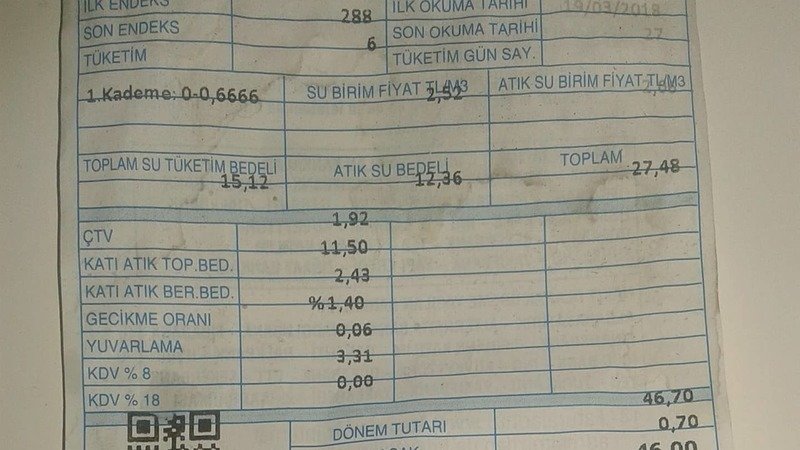 İLK ENDEKS İLK OKUMA TARİHİ 19/03/2018
SON ENDEKS 288 SON OKUMA TARİHİ
TÜKETİM 6 TÜKETİM GÜN SAY. 27
1.Kademe: 0-0,6666 SU BİRİM FİYAT TL/M3 2,52 ATIK SU BİRİM FİYAT TL/M3
TOPLAM SU TÜKETİM BEDELİ ATIK SU BEDELİ TOPLAM
15,12 12,36 27,48
1,92
ÇTV 11,50
KATI ATIK TOP.BED. 2,43
KATI ATIK BER.BED. %1,40
GECİKME ORANI 0,06
YUVARLAMA 3,31
KDV % 8 0,00
KDV % 18 46,70
DÖNEM TUTARI 0,70
46,00